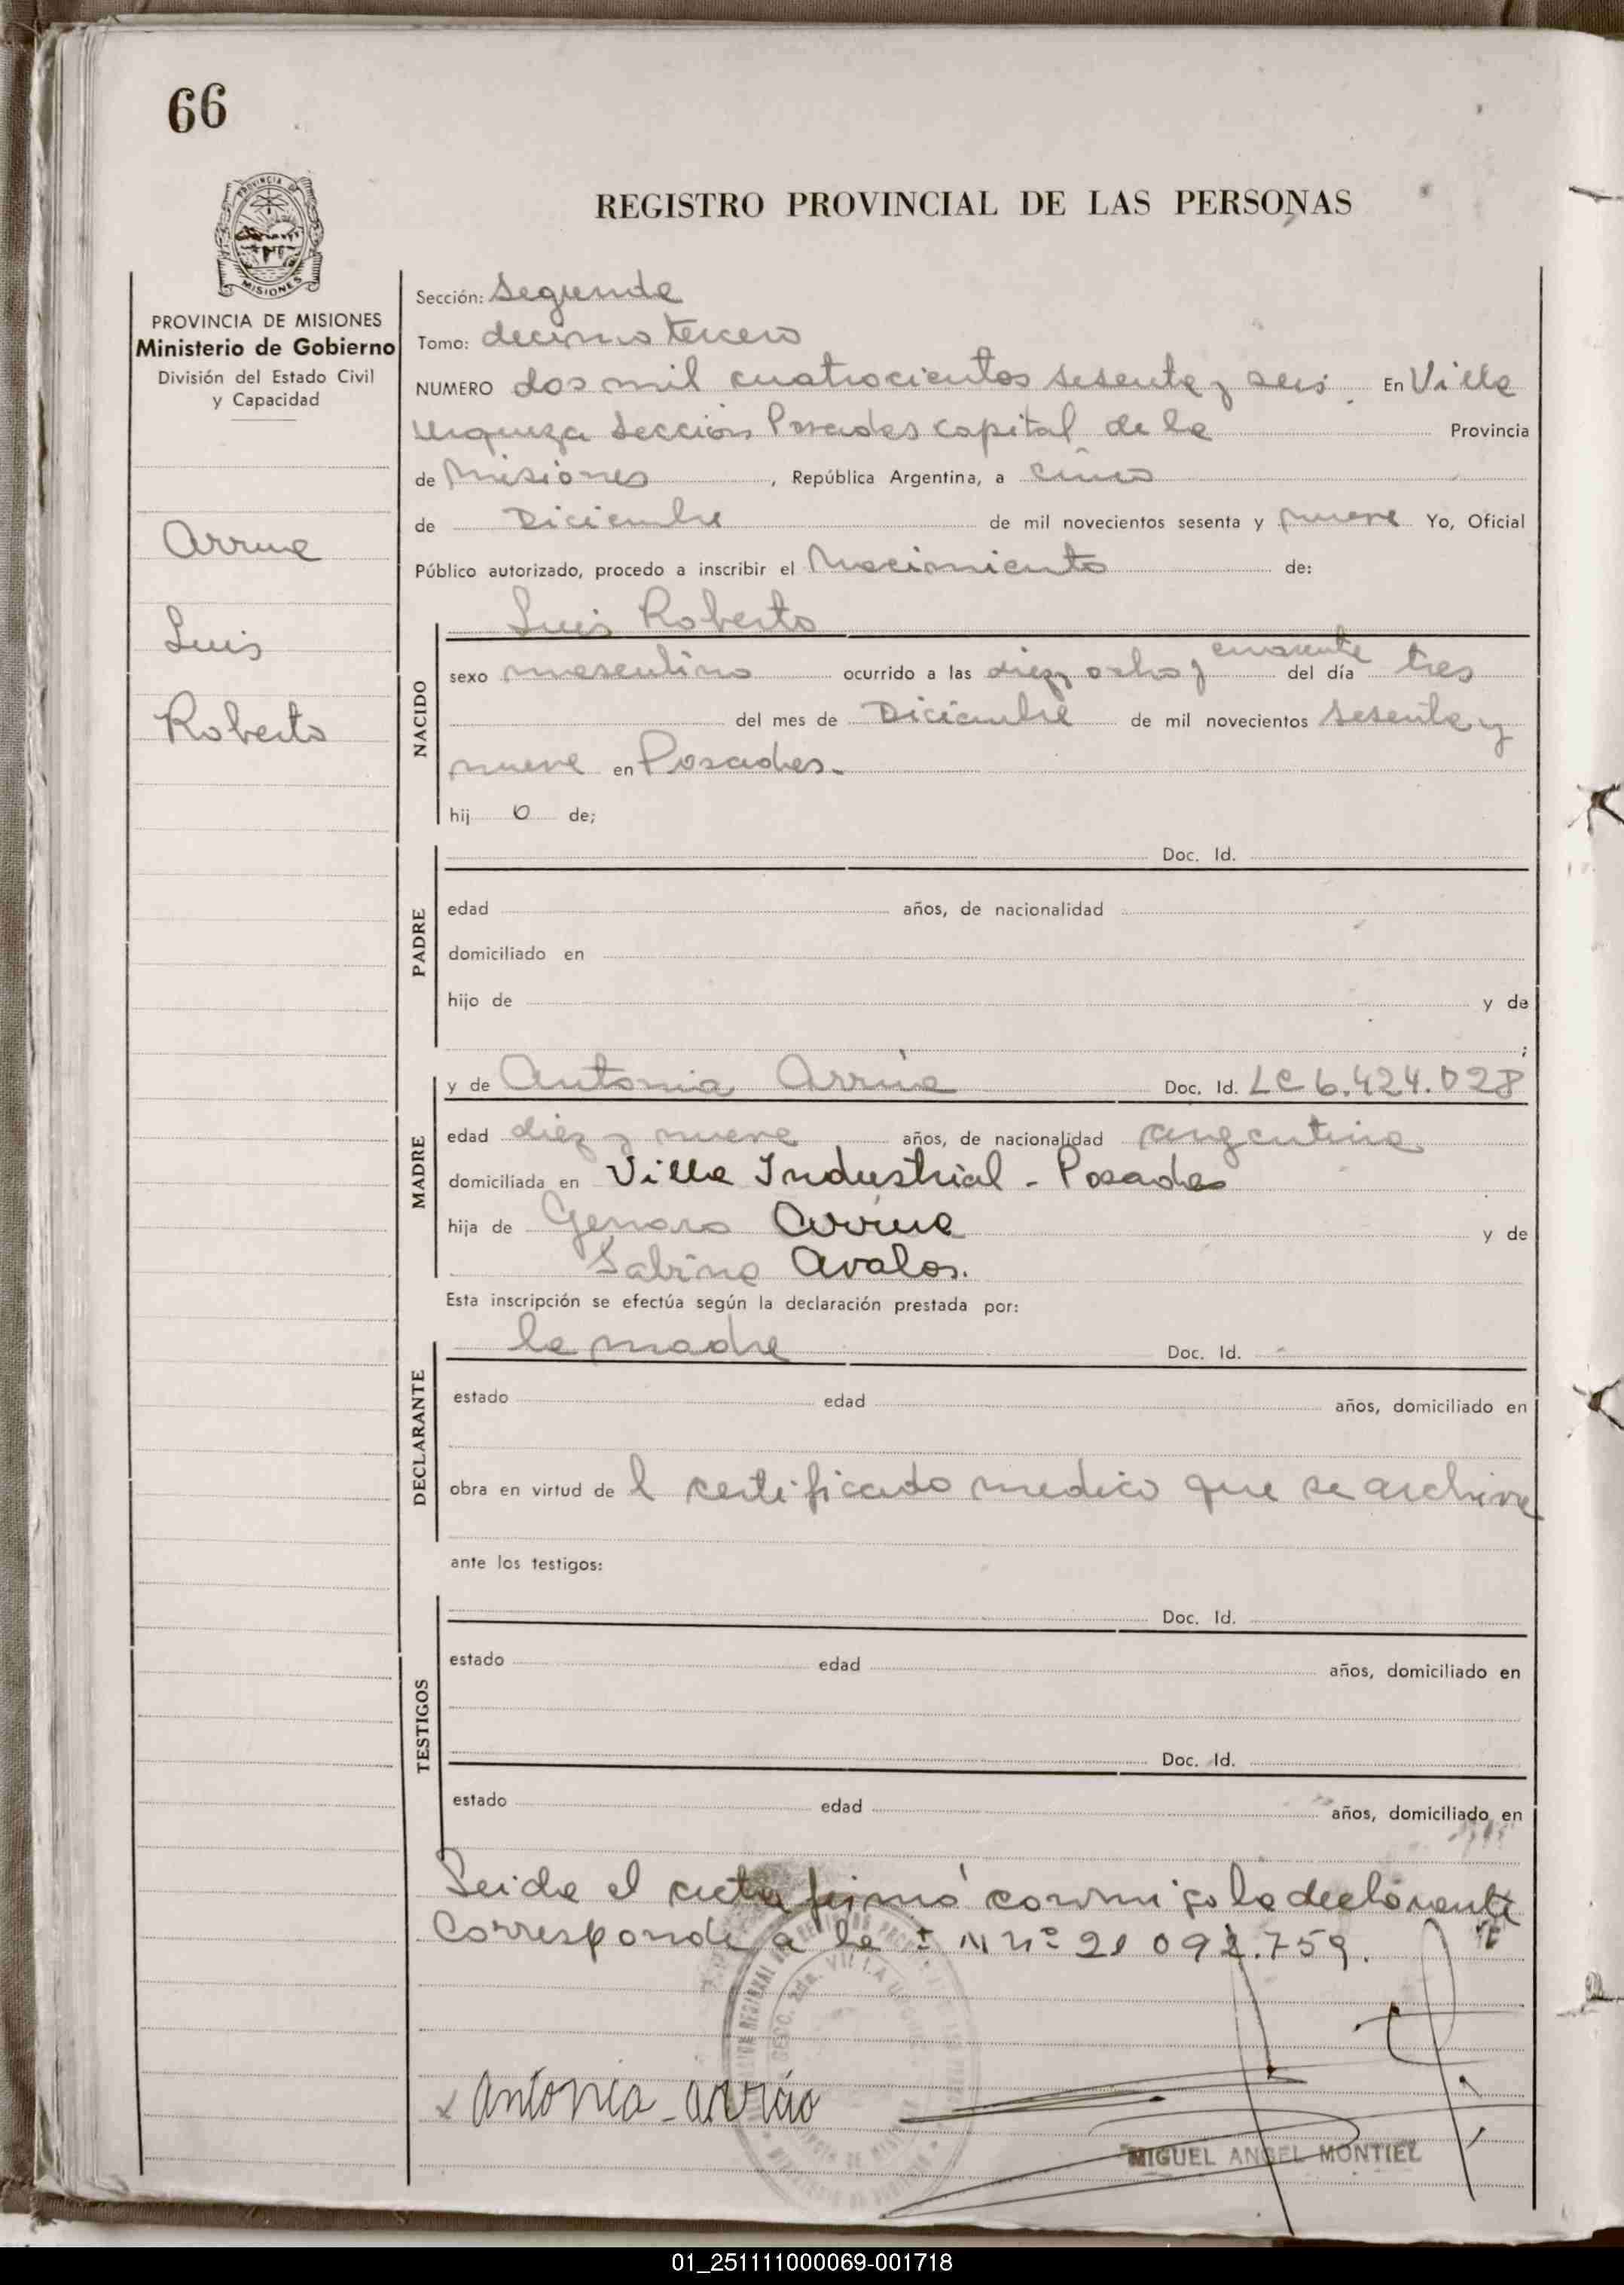 66
PROVINCIA DE
MISIONES
REGISTRO PROVINCIAL DE LAS PERSONAS
PROVINCIA DE MISIONES
Ministerio de Gobierno
División del Estado Civil
y Capacidad
Arrua
Luis
Roberto
Sección: Segunda
Tomo: decimo tercero
NUMERO dos mil cuatrocientos sesenta y seis. En Villa
Urquiza Sección Posadas capital de la Provincia
de Misiones, República Argentina, a cinco
de Diciembre de mil novecientos sesenta y nueve Yo, Oficial
Público autorizado, procedo a inscribir el Nacimiento de:
NACIDO
Luis Roberto
sexo masculino ocurrido a las diez y ocho y cuarenta del día tres
del mes de Diciembre de mil novecientos sesenta y
nueve en Posadas.
hij o de;
PADRE
Doc. Id.
edad años, de nacionalidad
domiciliado en
hijo de y de
;
MADRE
y de Antonia Arrúa Doc. Id. LC 6.424.028
edad diez y nueve años, de nacionalidad argentina
domiciliada en Villa Industrial - Posadas
hija de Genaro Arrúa y de
Sabina Avalos.
Esta inscripción se efectúa según la declaración prestada por:
DECLARANTE
la madre Doc. Id.
estado edad años, domiciliado en
obra en virtud de l certificado medico que se archiva
ante los testigos:
TESTIGOS
Doc. Id.
estado edad años, domiciliado en
Doc. Id.
estado edad años, domiciliado en
Leida el acta firmó conmigo la declarante
Corresponde a la nº 21 092.759.
Antonia Arrúa
MIGUEL ANGEL MONTIEL
01_251111000069-001718